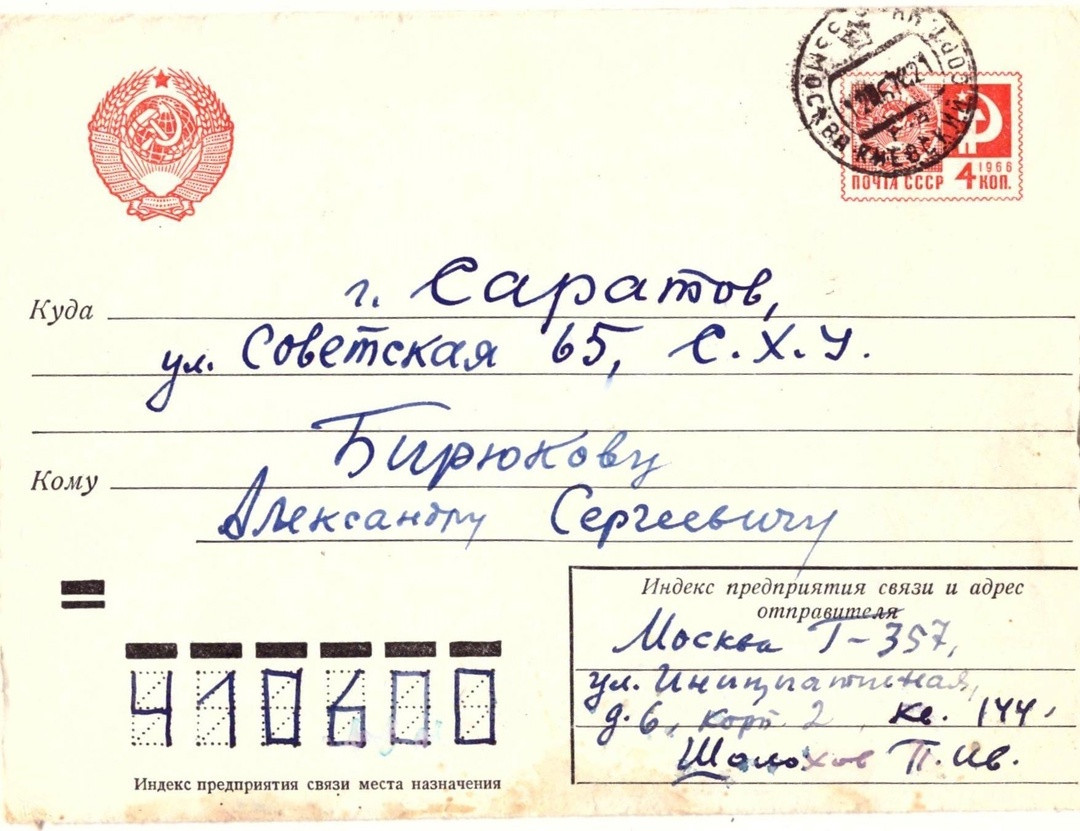 МОСКВА КИЕВСКИЙ
1966
ПОЧТА СССР 4 КОП.
Куда г. Саратов,
ул. Советская 65, С.Х.У.
Бирюкову
Кому
Александру Сергеевичу
Индекс предприятия связи и адрес
отправителя
Москва Г-357,
ул. Инициативная,
д. 6, корп. 2, кв. 144.
Шолохов П. Ив.
410600
Индекс предприятия связи места назначения